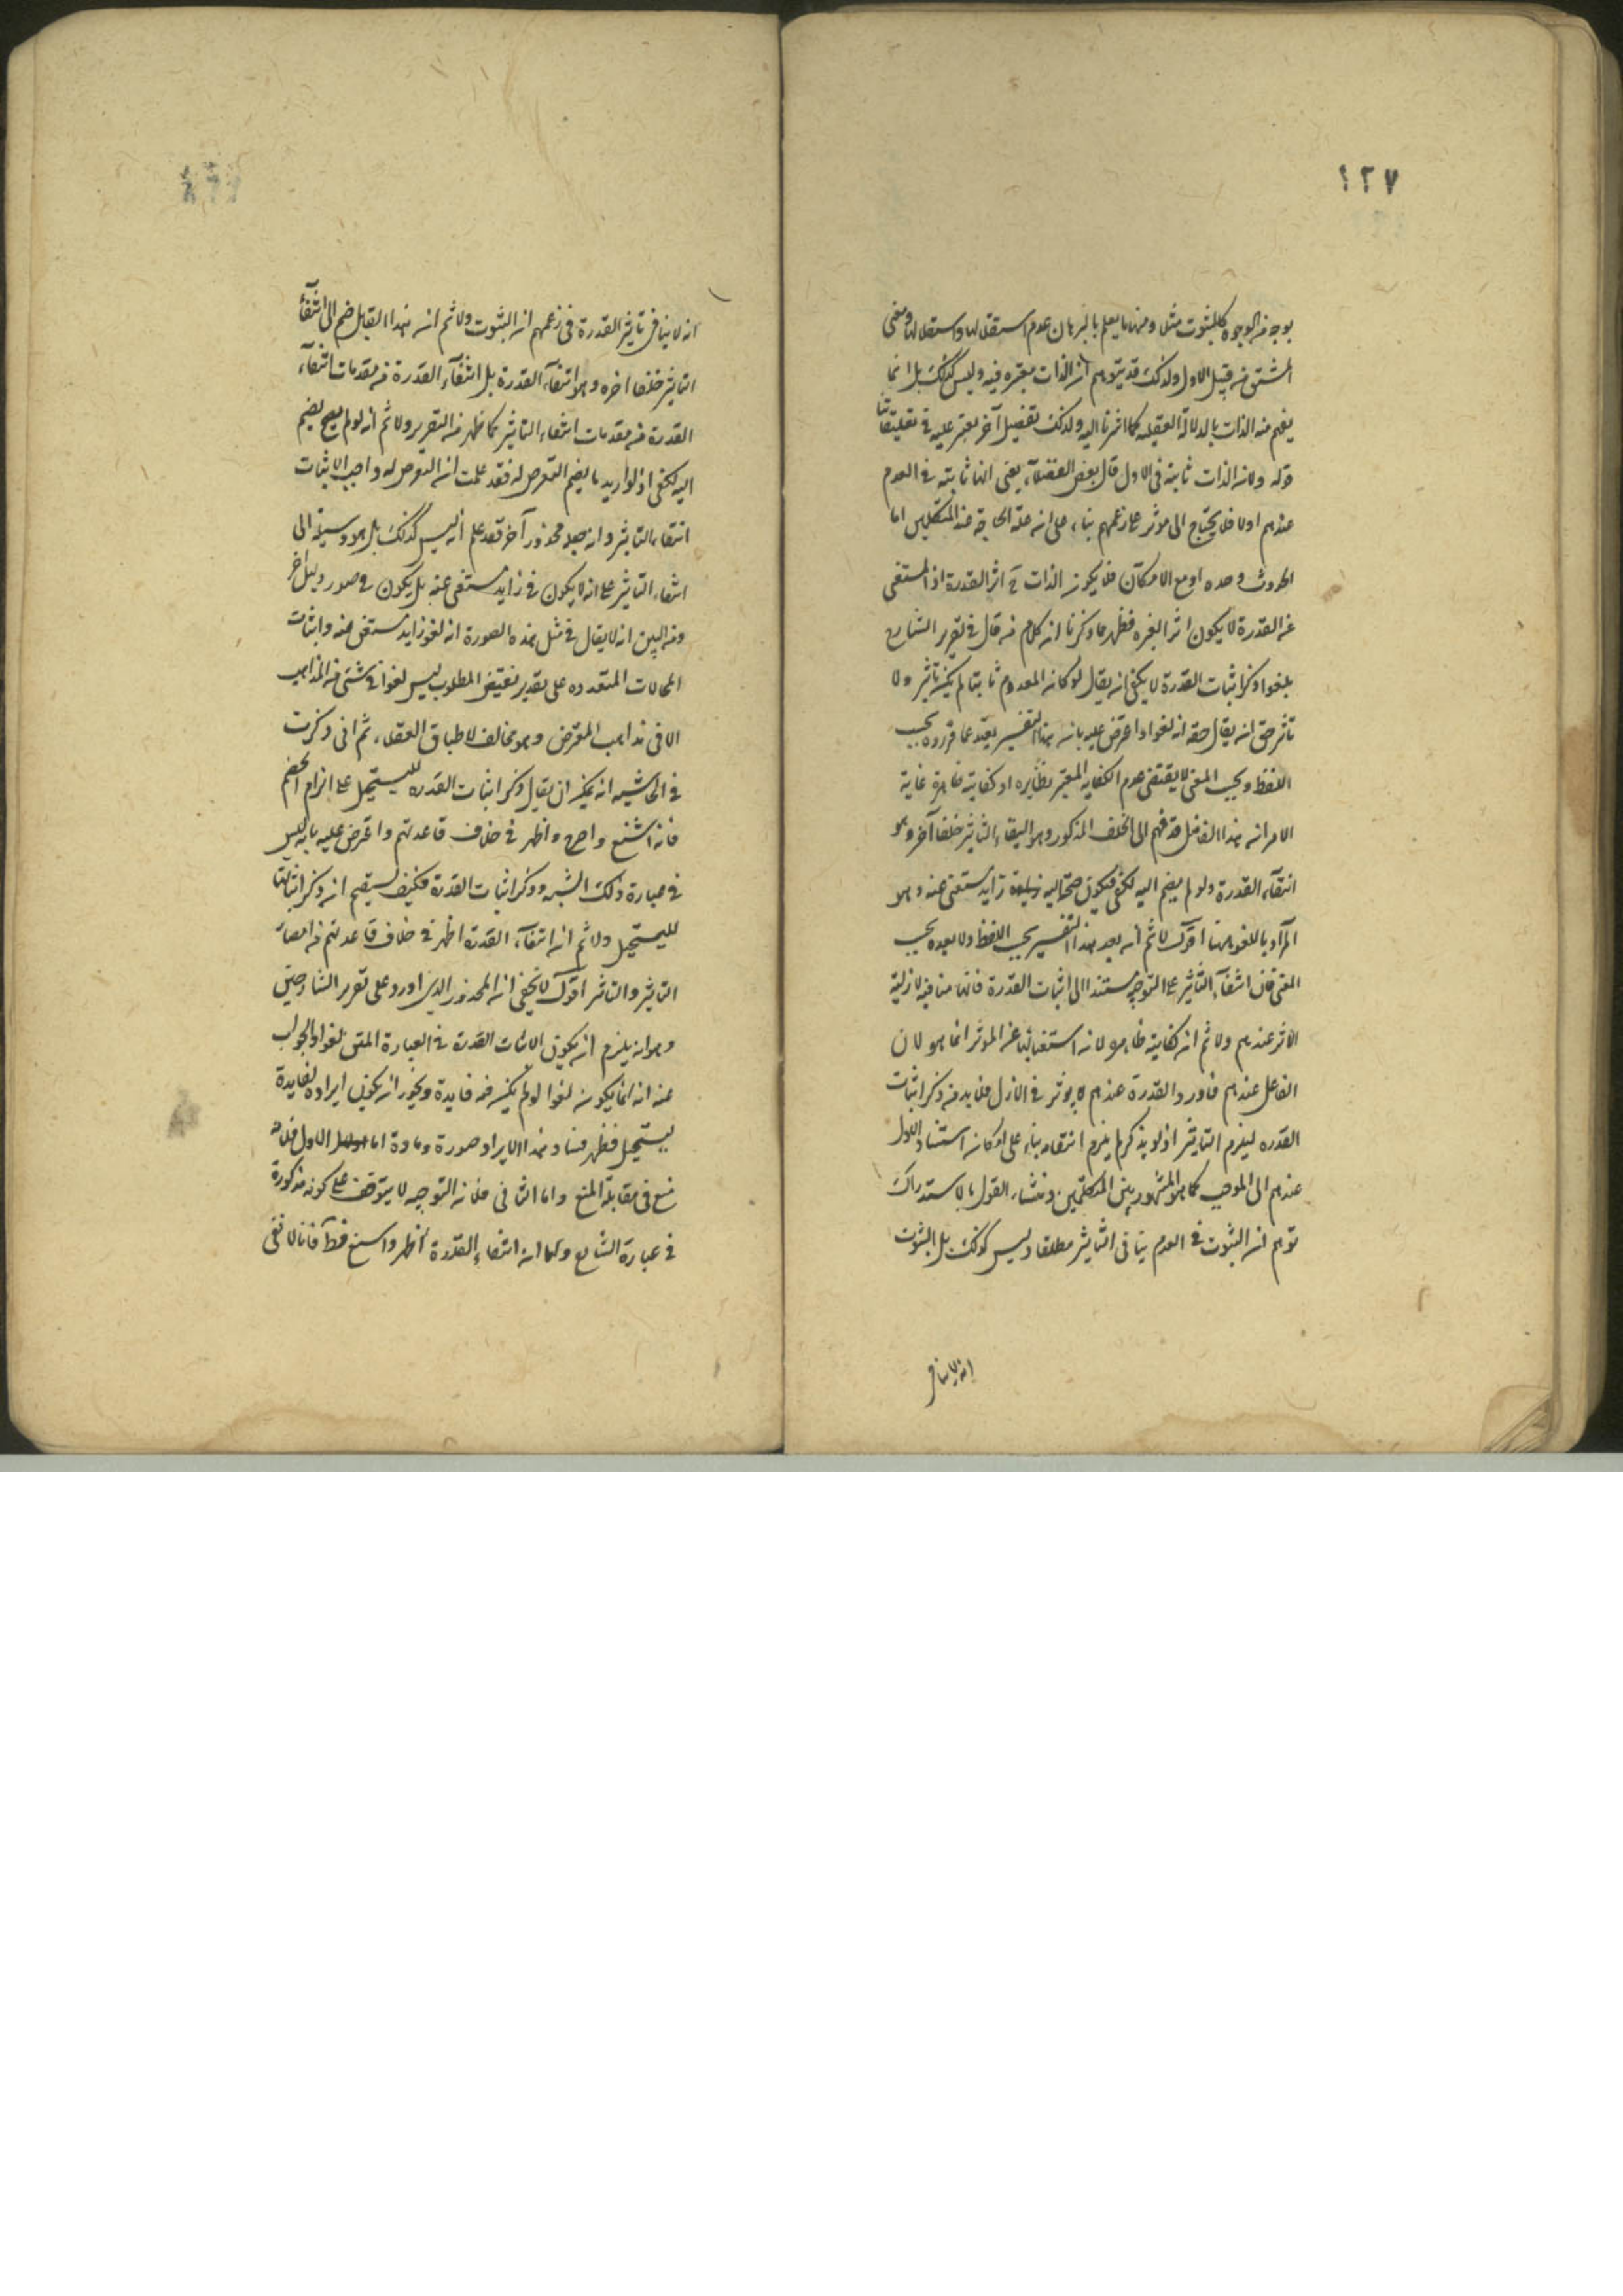 ١٢٧
بوجه من الوجوه كالثبوت مثلا ومنها ما يعلم بالبرهان عدم استقلالها واستقلالها ومعنى
المشتق من قبيل الاول ولذلك قد يتوهم ان الذات معتبره فيه وليس كذلك بل انما
يفهم منه الذات بالدلالة العقليه كما اشرنا اليه ولذلك تفصيل آخر يعثر عليه في تعليقاتنا
قوله ولان الذات ثابتة في الاول قال بعض الفضلاء يعنى انها ثابته في العدم
عندهم اولا فلا يحتاج الى موثر على زعمهم بناء على ان علة الحاجة عند المتكلمين اما
الحدوث وحده او مع الامكان فلا يكون الذات اثر القدرة اذ المستغنى
عن القدرة لا يكون اثر الغيره فظهر مما ذكرنا ان كلام من قال في تقرير الشارح
يلغو ذكر اثبات القدرة لا يكفى ان يقال لو كان المعدوم ثابتا لم يكن تاثير ولا
تاثر حق ان يقال حقه انه لغو اذا اعترض عليه بان هذا التفسير بعيد عما قرروه بحسب
اللفظ وبحسب المعنى لا يقتضى عدم الكفايه المعتبر نظايره او كفايته ظاهرة غاية
الامر ان هذا الفاضل قد ضم الى الخلف المذكور وهو انتفاء التاثير خلفا آخر وهو
انتفاء القدرة ولو لم يضم اليه لكفى فيكون ضمها اليه زايد مستغنى عنه وهو
المراد باللغو ههنا اقول لا ثم انه بعيد هذا التفسير بحسب اللفظ ولا بعده بحسب
المعنى فان انتفاء التاثير على التوجيه مستندا الى اثبات القدرة فانها منافيه لازلية
الاثر عندهم ولا ثم ان كفايته ظاهره لان استغنائها عن الموثر انما هو لان
الفاعل عندهم قادر والقدرة عندهم لا يوثر في الازل فلا بد من ذكر اثبات
القدره ليلزم التاثير اذ لو لم يذكر لم يلزم انتفاءه بناء على امكان استناد الاول
عندهم الى الموجب كما هو المشهور بين المتكلمين ومنشاء القول بالاستدراك
توهم ان الثبوت في العدم ينافى التاثير مطلقا وليس كذلك بل الثبوت
انه لا ينافى
انه لا ينافى تاثير القدرة في زعمهم ان الثبوت ولا ثم ان هذا القايل ضم الى انتفاء
التاثير خلفا اخره وهو انتفاء القدرة بل انتفاء القدرة من مقدمات انتفاء
القدرة من مقدمات انتفاء التاثير كما ظهر من التقرير ولا ثم انه لو لم يضم
اليه لكفى اذ لو اريد ما يضم التعرض له فقد علمت ان التعرض له واجب لاثبات
انتفاء التاثير وان جعله محذور آخر فقد علم انه ليس كذلك بل هو وسيلة الى
انتفاء التاثير على انه لا يكون زايد مستغنى عنه بل يكون في صدد دليل آخر
ومن البين انه لا يقال في مثل هذه الصورة انه لغو زايد مستغنى عنه واثبات
المحالات المتعدده على تقدير نقيض المطلوب ليس لغوا في شئ من المذاهب
الا في مذاهب المعترض وهو مخالف لاطباق العقلاء ثم انى ذكرت
في الحاشيه انه يمكن ان يقال ذكر اثبات القدره ليستحيل على الزام الخصم
فانه اشنع واصرح واظهر في خلاف قاعدتهم واعترض عليه بانه ليس
في عبارة ذلك الشبه وذكر اثبات القدرة فكيف يستقيم انه ذكر اثباتها
لليستحيل ولا ثم ان انتفاء القدرة اظهر في خلاف قاعدتهم من انتفاء
التاثير والتاثر اقول لا يخفى ان المحذور الذى اورد على تقرير الشارحين
وهو انه يلزم ان يكون الاثبات القدرة في العبارة المتن لغوا والجواب
عنه انه انما يكون لغوا لو لم يكن فيه فايدة ويجوز ان يكون ايراده لفايدة
يستحيل فظهر فساد هذا الايراد صورة ومادة اما الاول فلانه
منع في مقابلة المنع واما الثانى فلان التوجيه لا يتوقف على كونه مذكورة
في عبارة الشارح وكما ان انتفاء القدرة اظهر واشنع قطعا فانا لا نفى